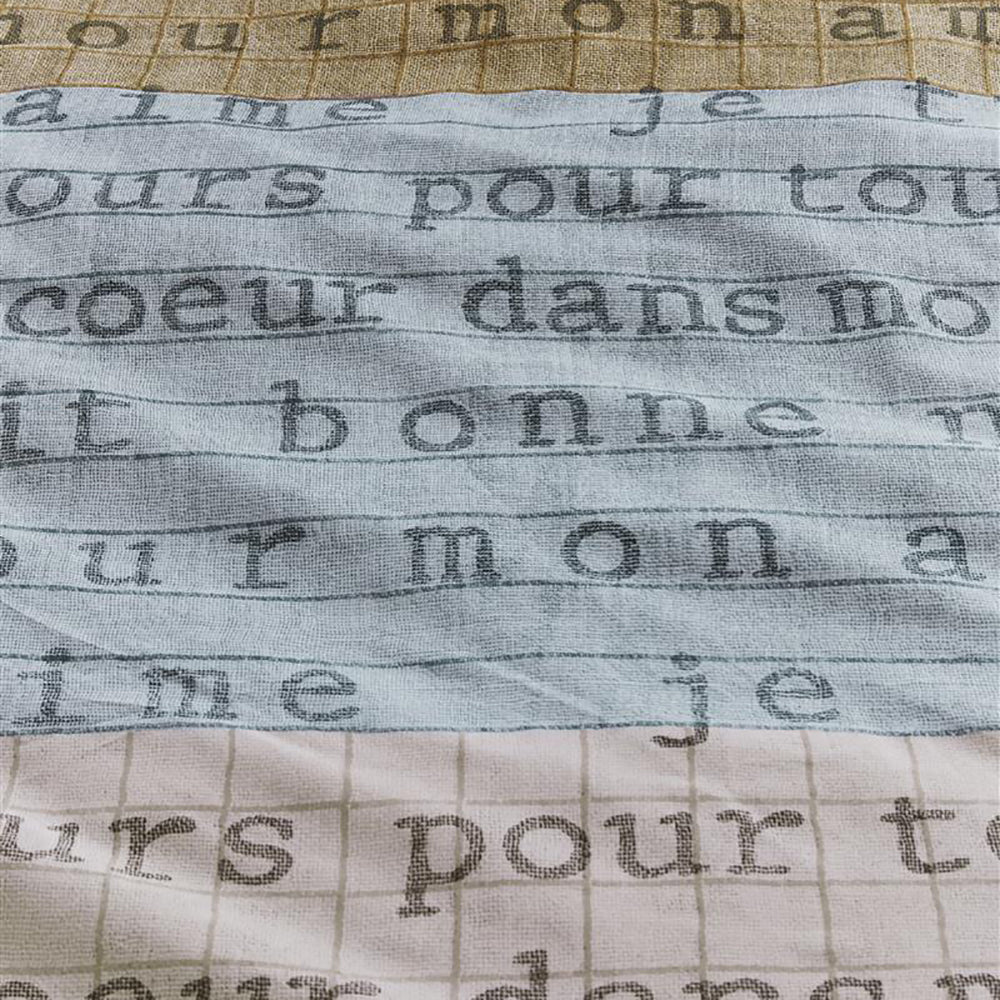 our mon am
aime je t
ours pour tou
coeur dans mo
it bonne n
our mon a
ime je
urs pour to